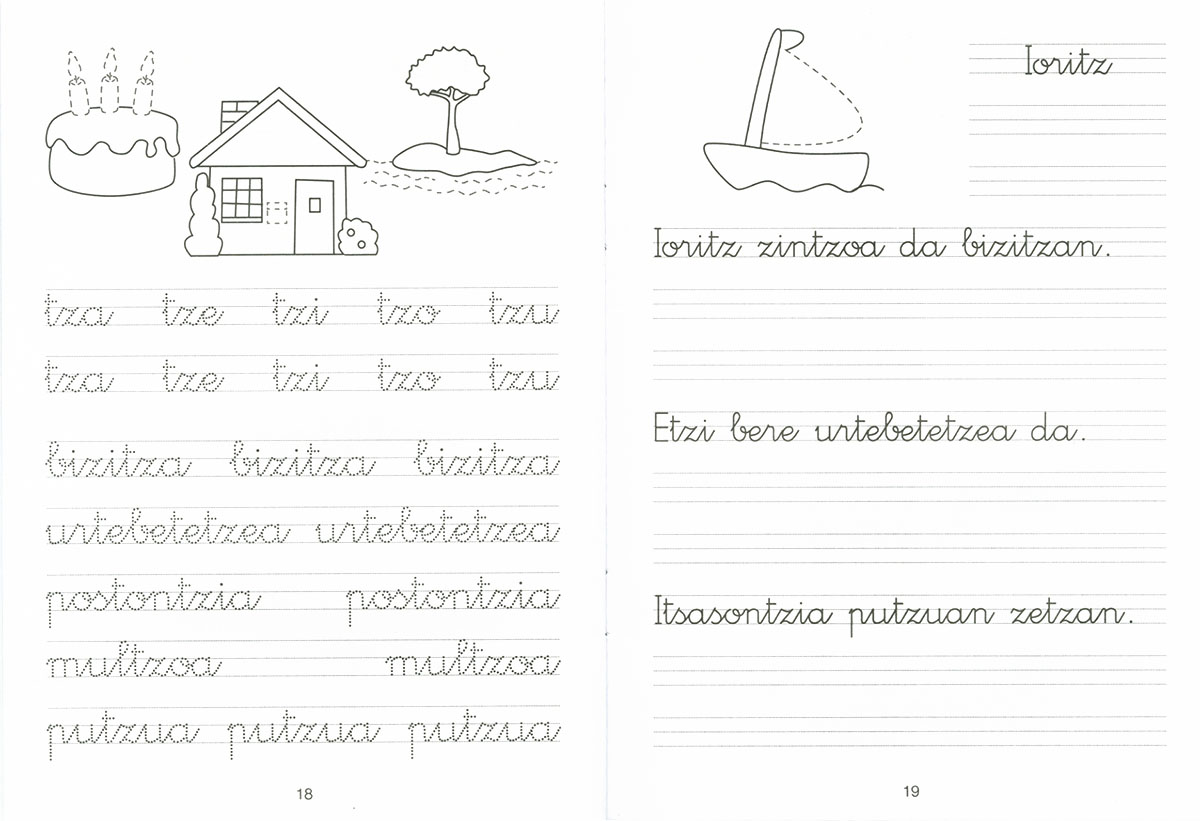 tza tze tzi tzo tzu
tza tze tzi tzo tzu
bizitza bizitza bizitza
urtebetetzea urtebetetzea
postontzia postontzia
multzoa multzoa
putzua putzua putzua
18
Ioritz
Ioritz zintzoa da bizitzan.
Etzi bere urtebetetzea da.
Itsasontzia putzuan zetzan.
19